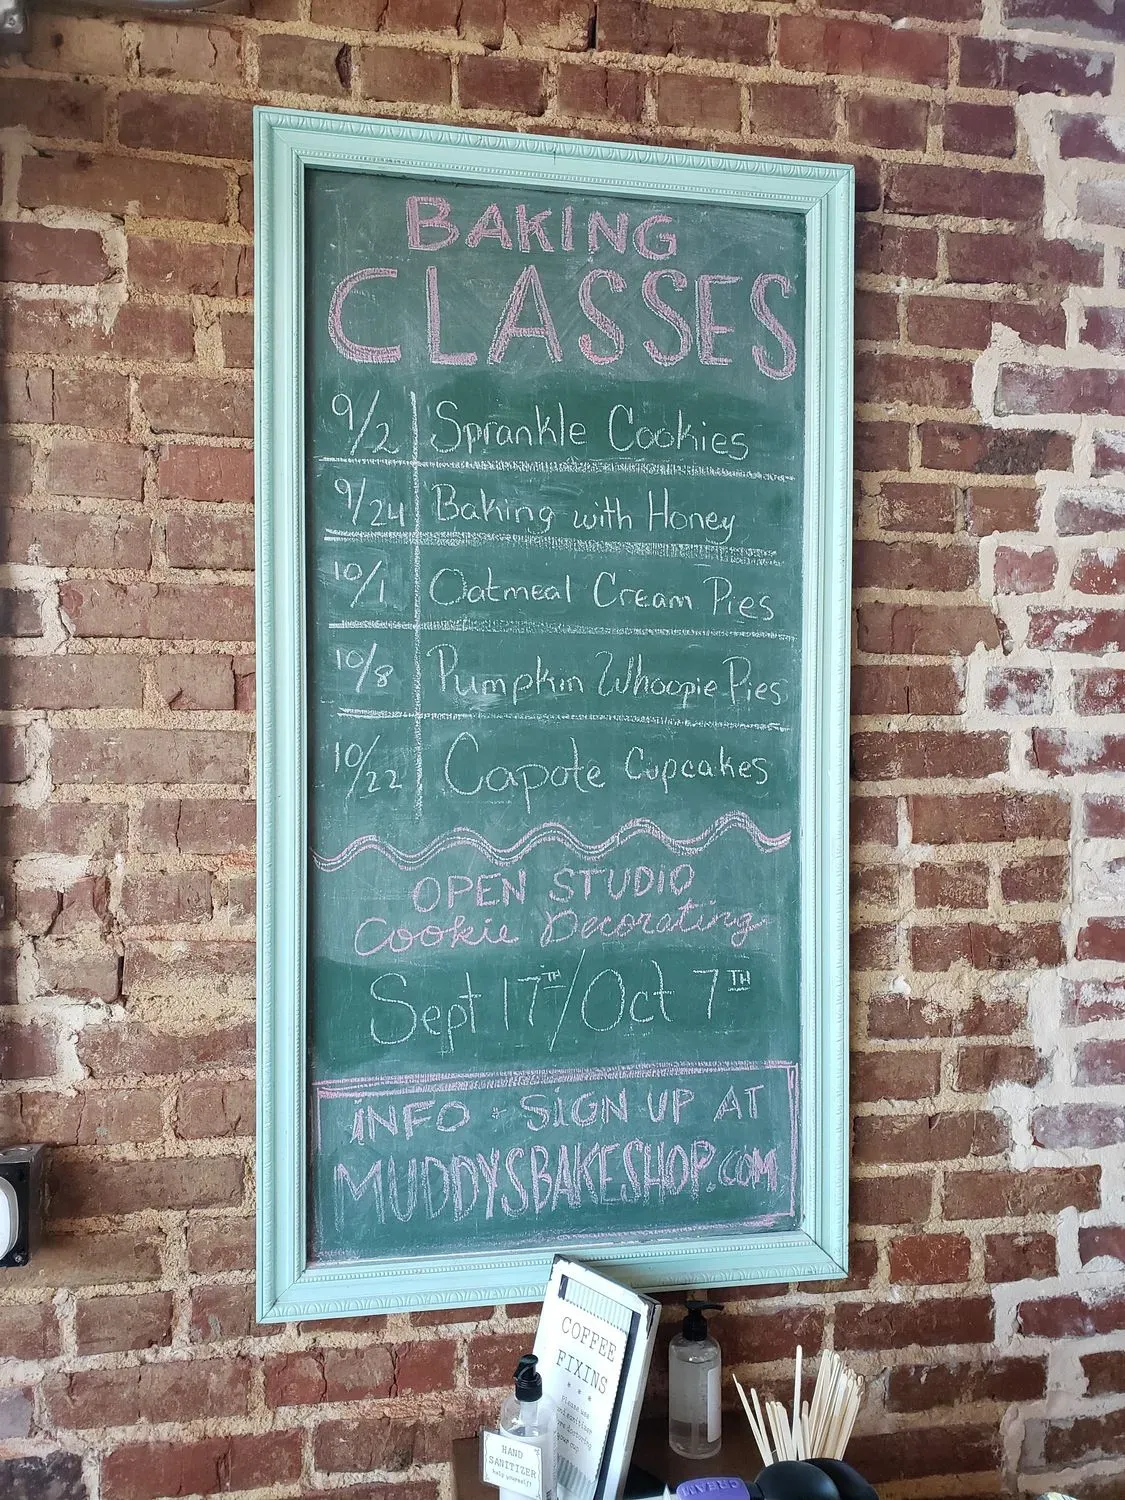 BAKING
CLASSES
9/2 Sprankle Cookies
9/24 Baking with Honey
10/1 Oatmeal Cream Pies
10/8 Pumpkin Whoopie Pies
10/22 Capote Cupcakes
OPEN STUDIO
Cookie Decorating
Sept 17TH/Oct 7TH
INFO + SIGN UP AT
MUDDYSBAKESHOP.COM
COFFEE
FIXINS
* * *
Please use
hand sanitizer
before doctoring
your cup
HAND
SANITIZER
help yourself!
CREAM